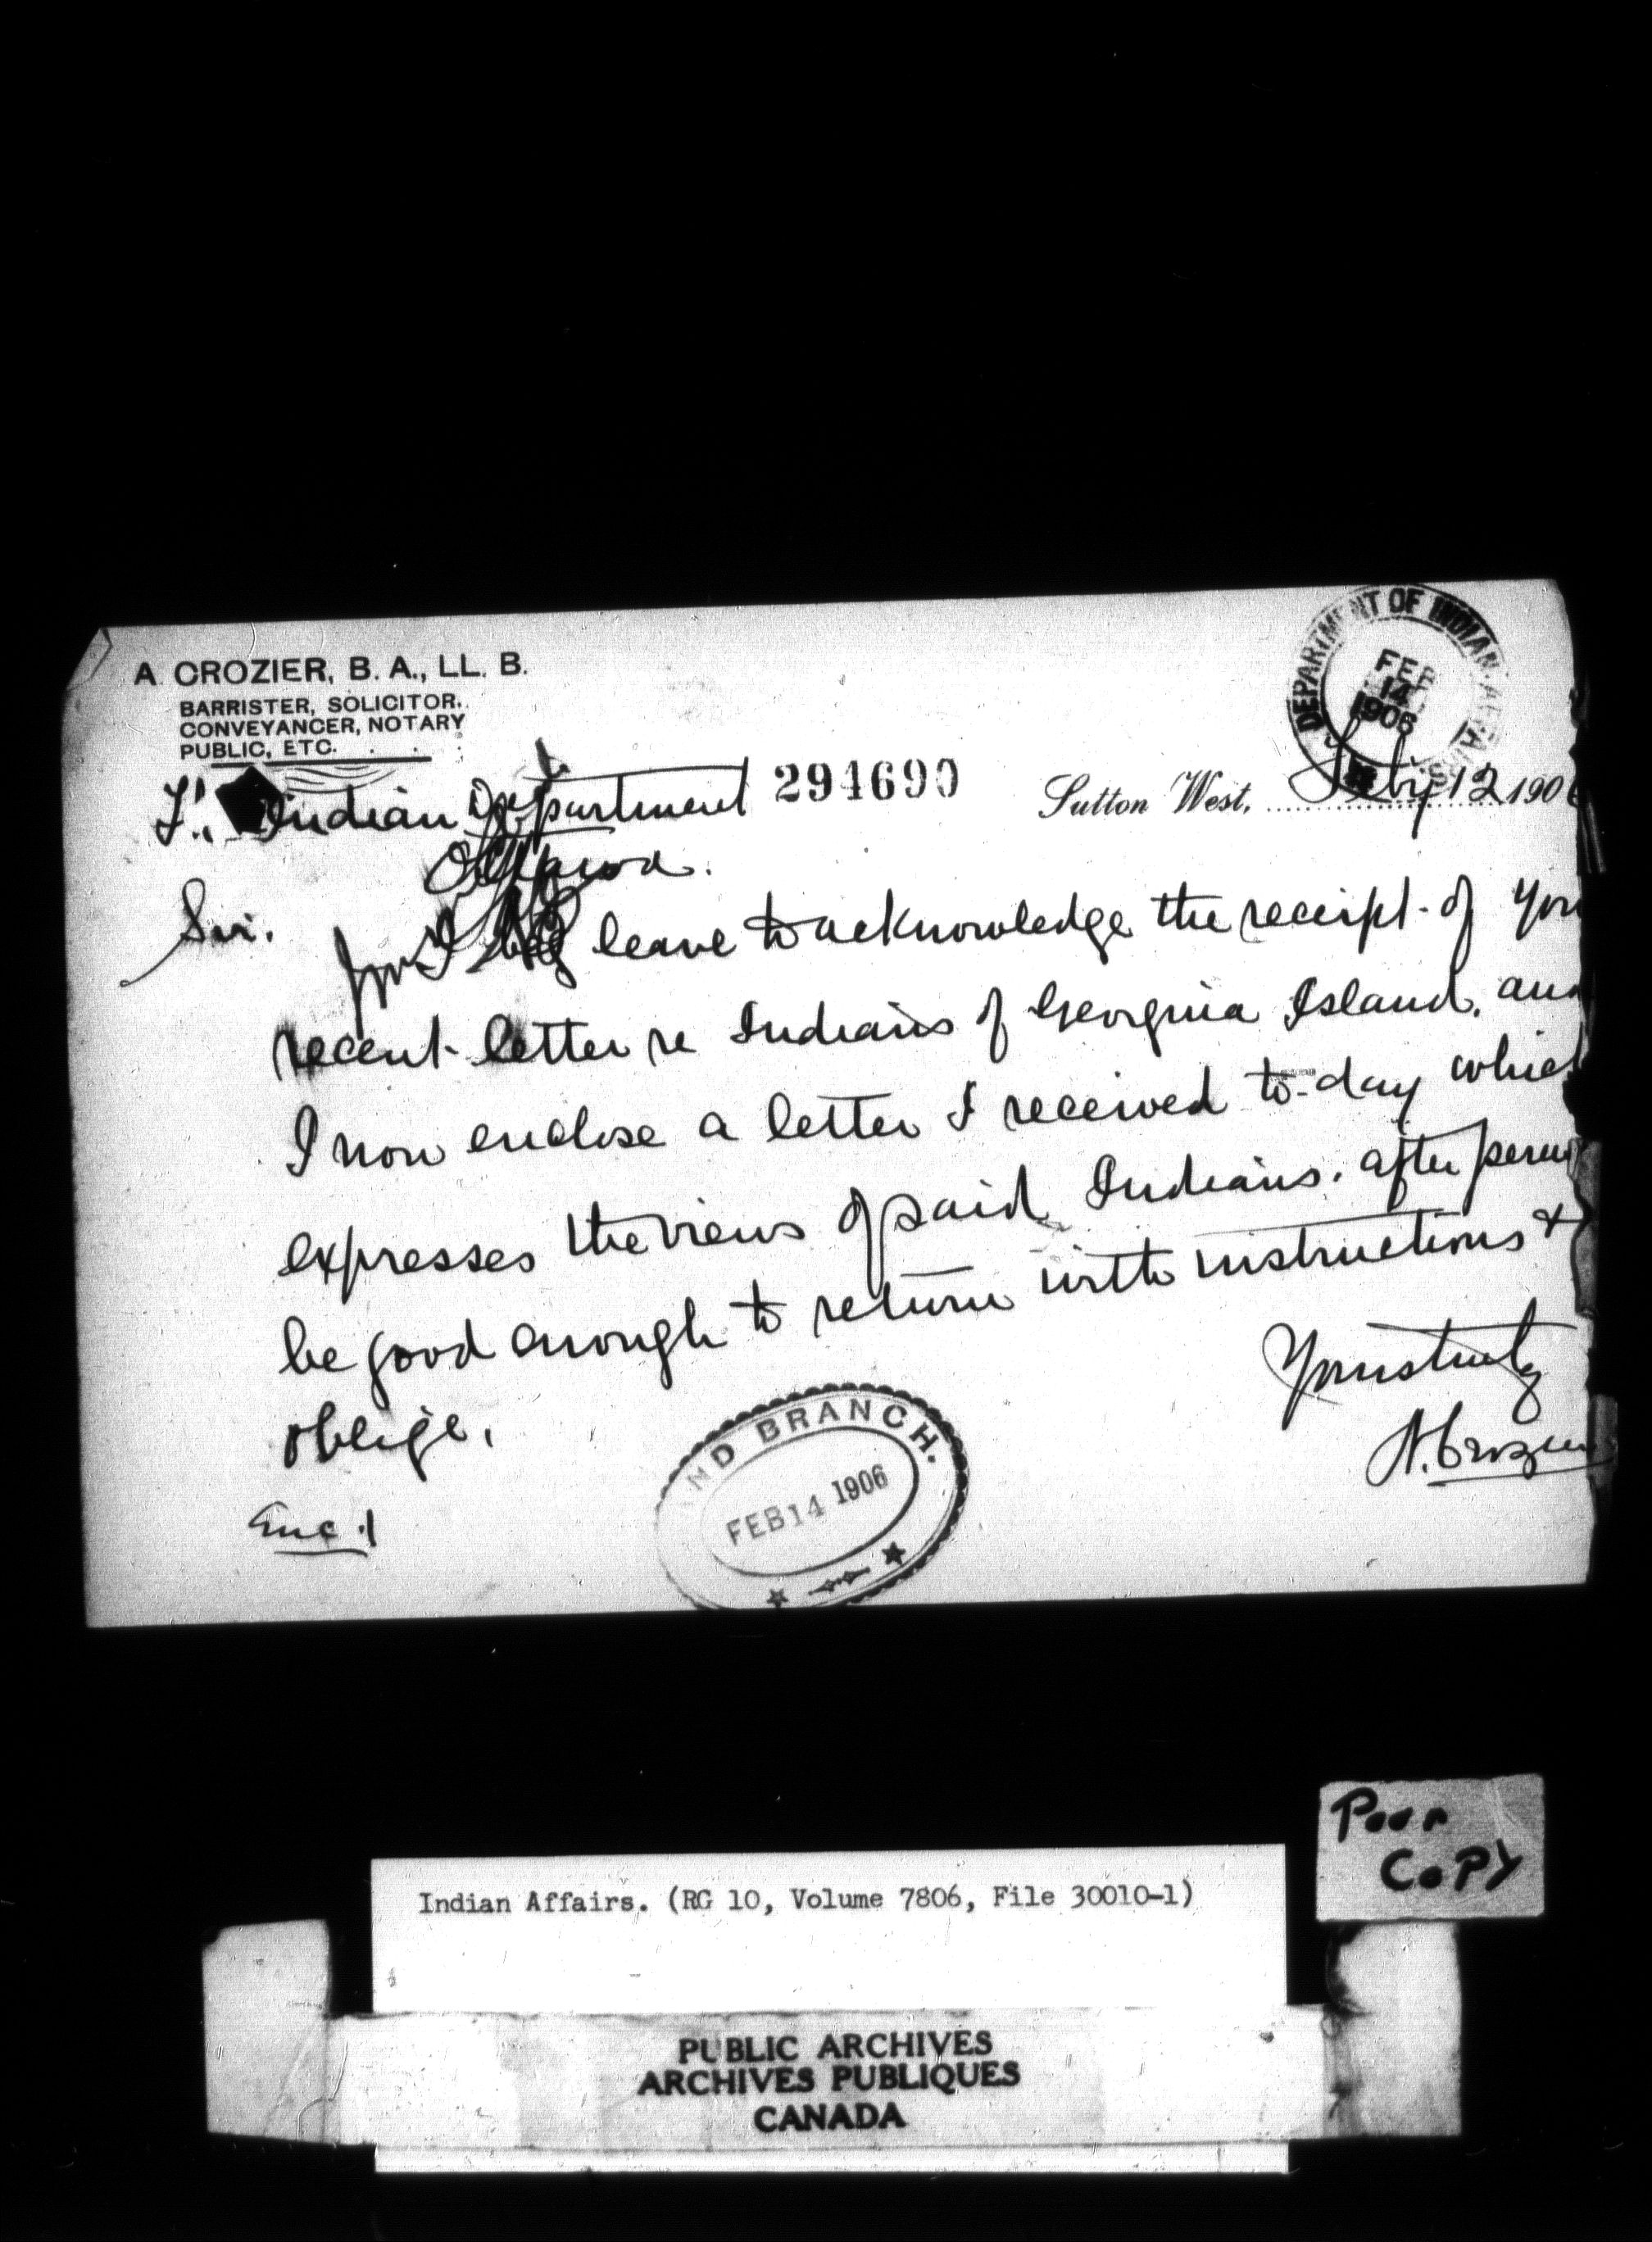 A. CROZIER, B. A., LL. B.
BARRISTER, SOLICITOR,
CONVEYANCER, NOTARY
PUBLIC, ETC.
DEPARTMENT OF INDIAN AFFAIRS
FEB
14
1906
294690
Sutton West, Feby 12 1906
Indian Department
Ottawa.
Sir.
I beg leave to acknowledge the receipt of you
recent letter re Indians of Georgina Island, and
I now enclose a letter I received to-day which
expresses the views of said Indians. after perus
be good enough to return with instructions &
oblige,
Yours truly
A. Crozier
Enc. 1
AND BRANCH.
FEB 14 1906
Poor
COPY
Indian Affairs. (RG 10, Volume 7806, File 30010-1)
PUBLIC ARCHIVES
ARCHIVES PUBLIQUES
CANADA